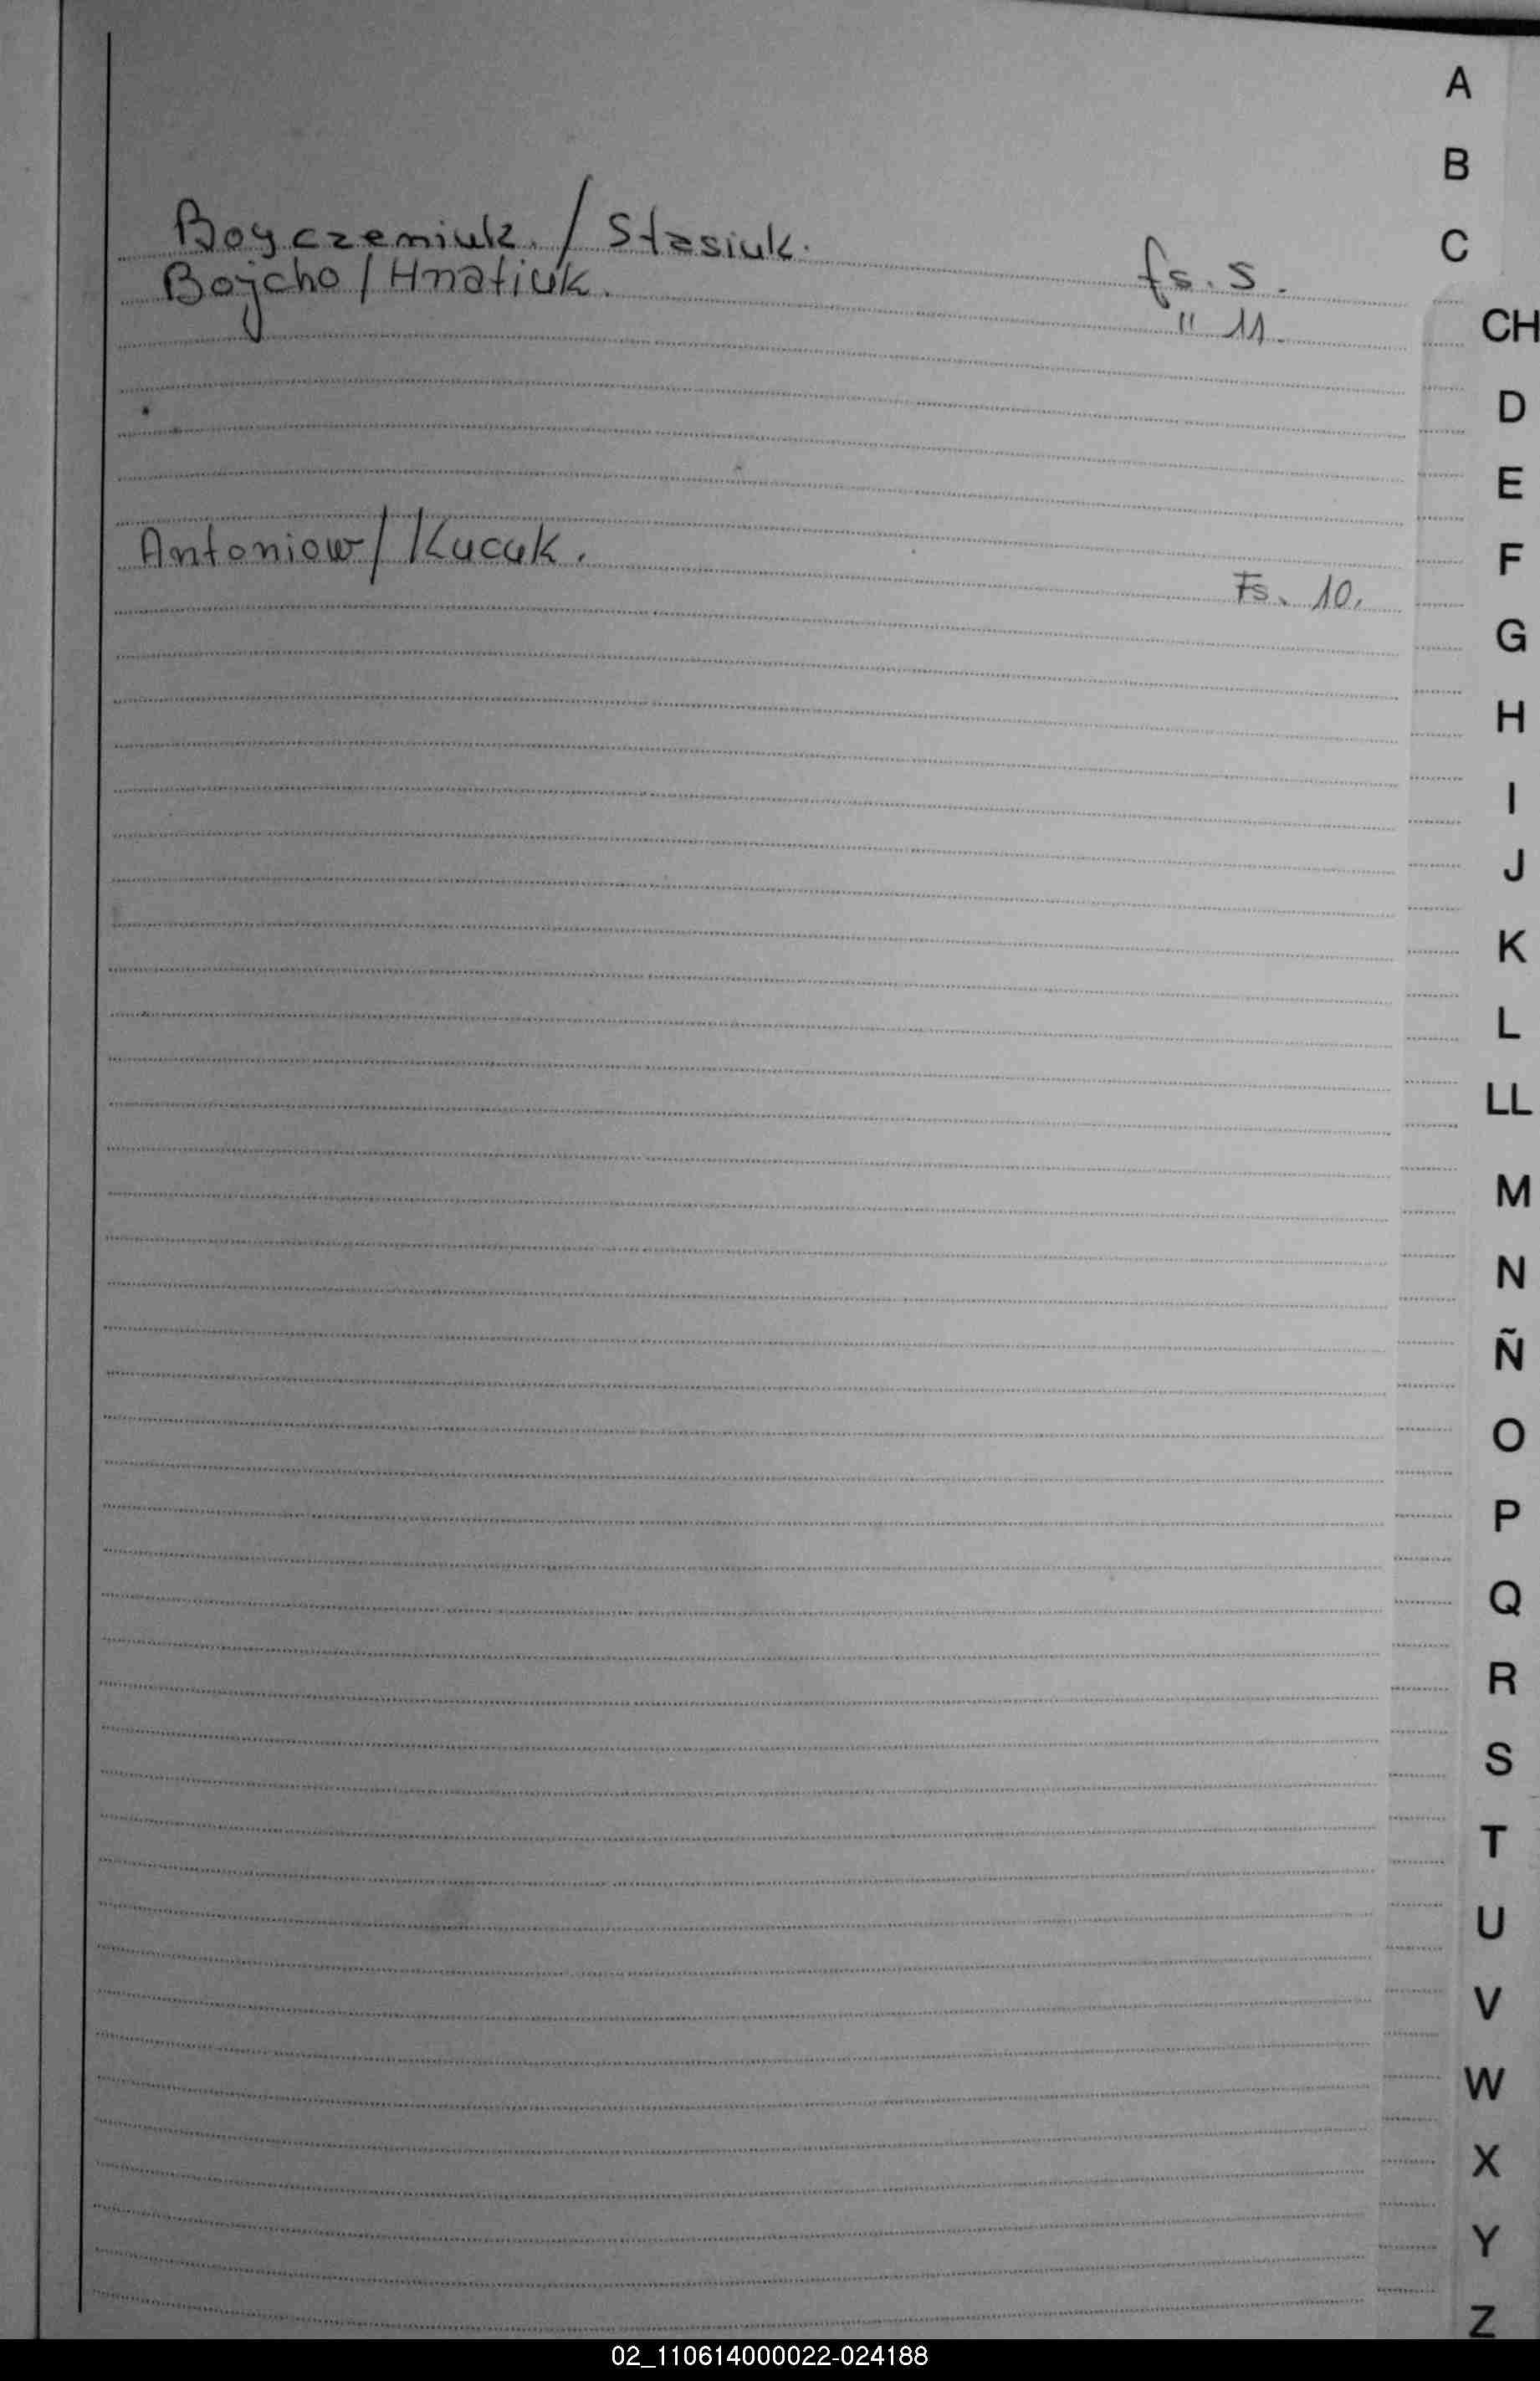 Boyczeniuk. / Stasiuk. fs. 5.
Bojcho / Hnatiuk. " 11.
Antoniow / Kucuk. Fs. 10.
A
B
C
CH
D
E
F
G
H
I
J
K
L
LL
M
N
Ñ
O
P
Q
R
S
T
U
V
W
X
Y
Z
02_110614000022-024188